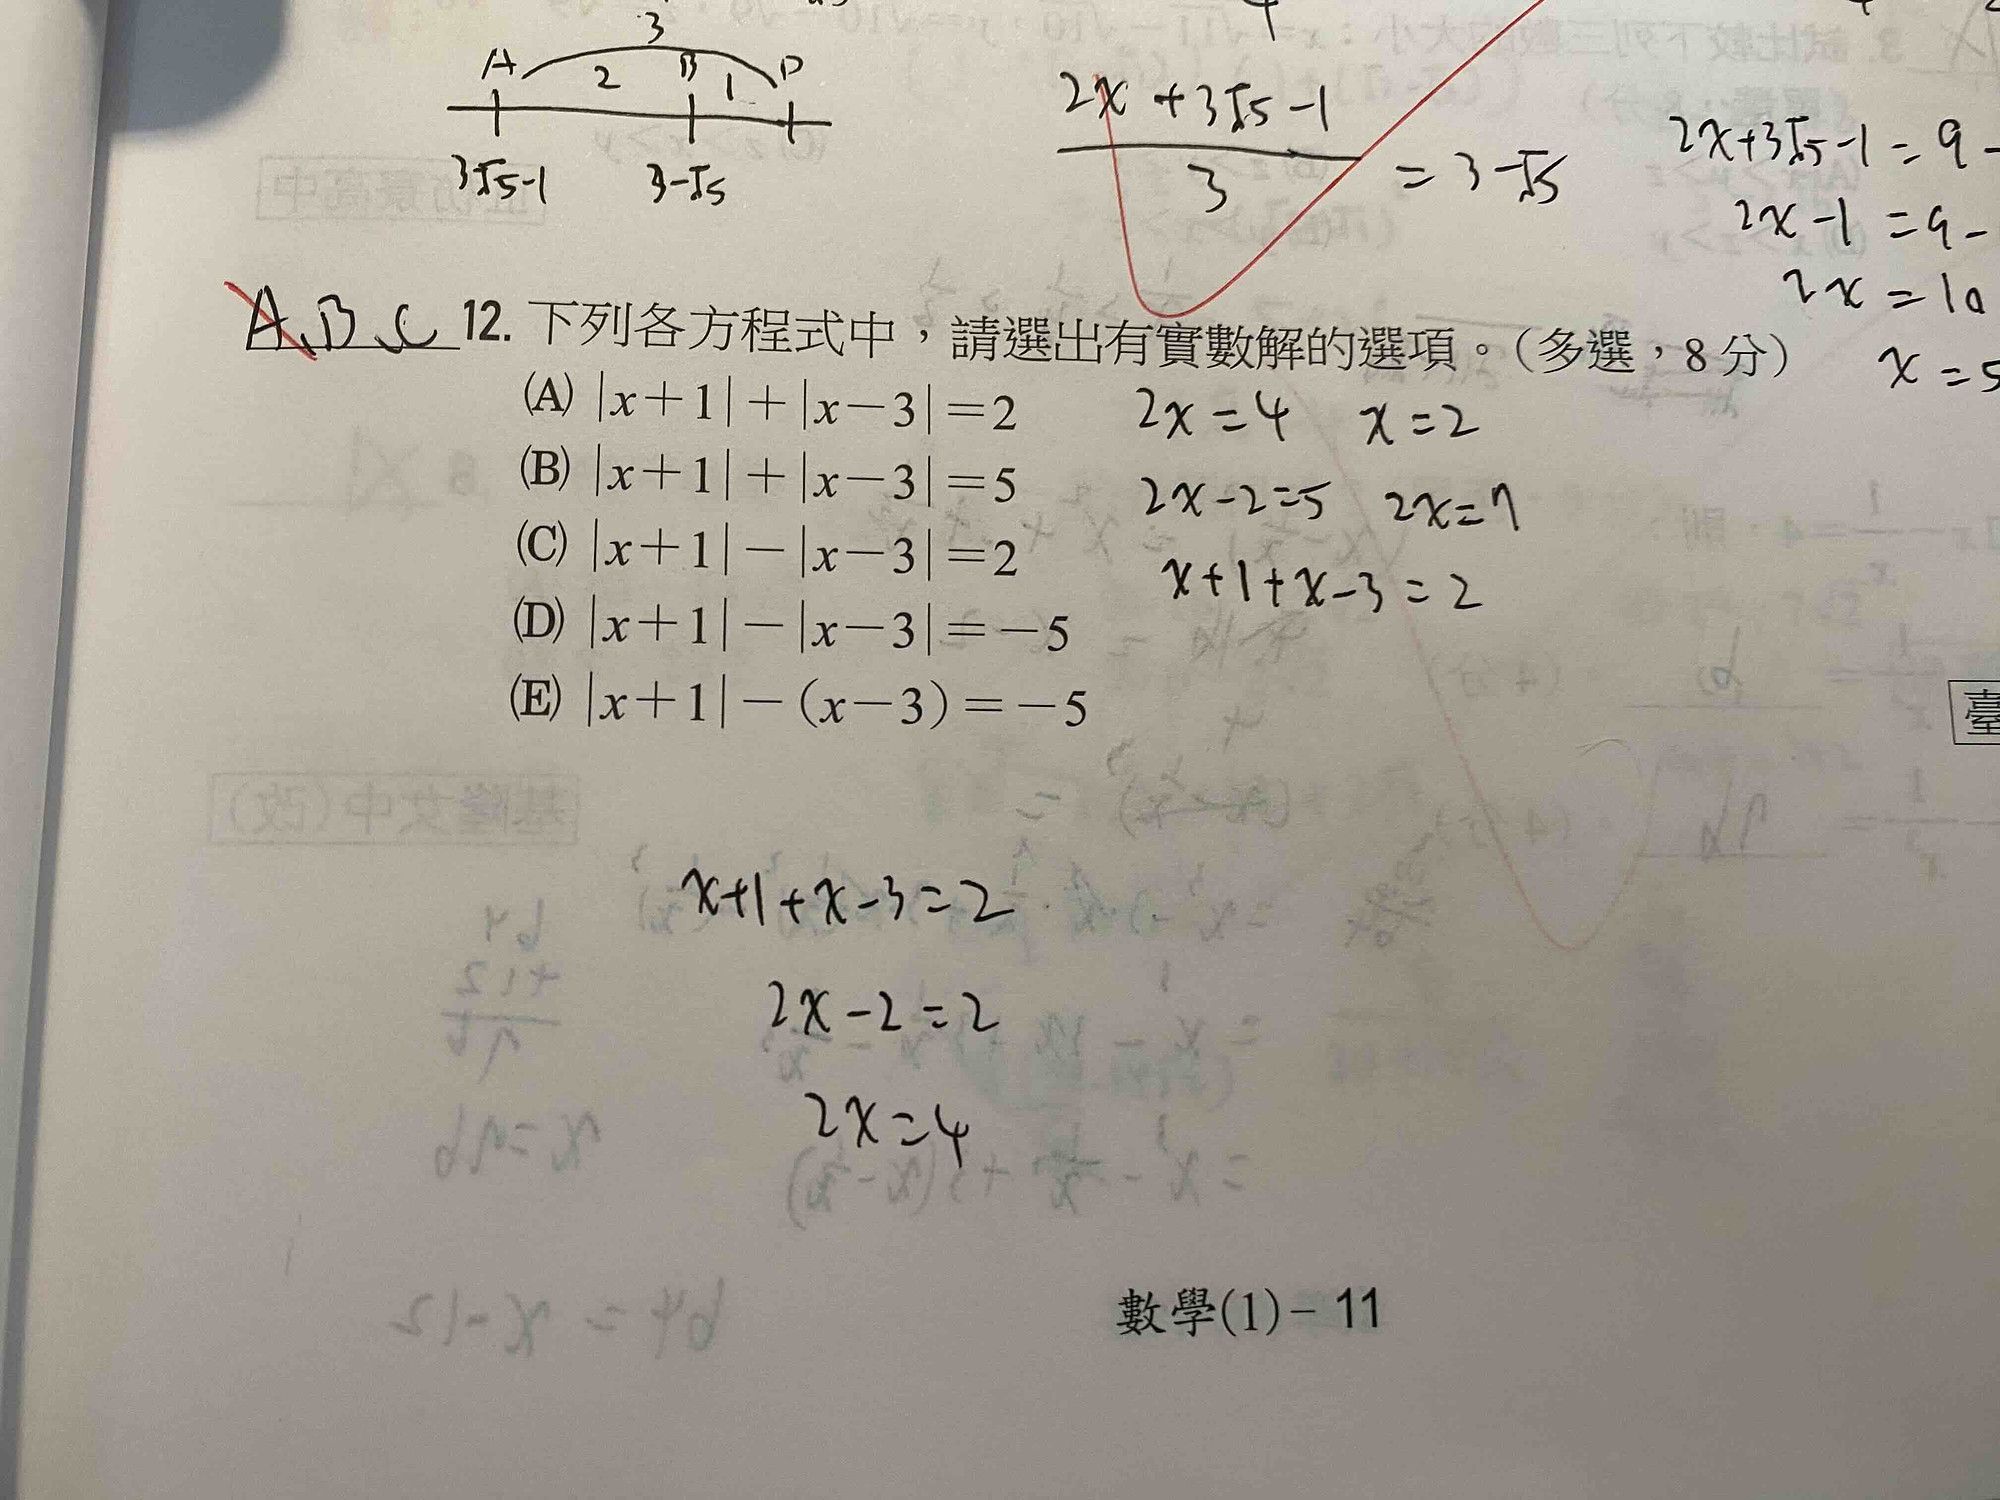 3
A 2 B 1 P
3√5-1 3-√5
2x+3√5-1
3
= 3-√5
2x+3√5-1=9-
2x-1=9-
2x=10
x=5
A、B、C 12. 下列各方程式中，請選出有實數解的選項。（多選，8分）
(A) |x+1|+|x-3|=2 2x=4 x=2
(B) |x+1|+|x-3|=5 2x-2=5 2x=7
(C) |x+1|-|x-3|=2 x+1+x-3=2
(D) |x+1|-|x-3|=-5
(E) |x+1|-(x-3)=-5
臺
x+1+x-3=2
2x-2=2
2x=4
數學(1)-11